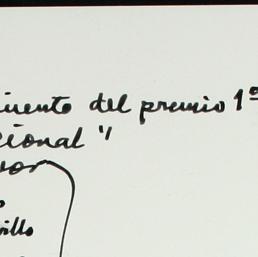 imento del premio 1º
cional"
vor
illo